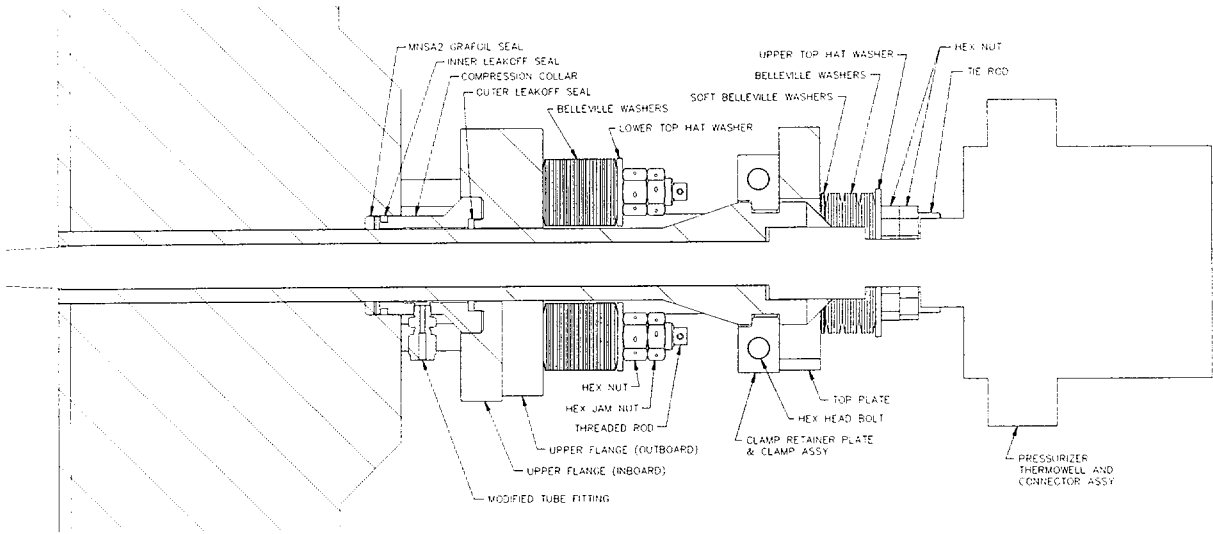 MNSA2 GRAFOIL SEAL
INNER LEAKOFF SEAL
COMPRESSION COLLAR
OUTER LEAKOFF SEAL
BELLEVILLE WASHERS
LOWER TOP HAT WASHER
UPPER TOP HAT WASHER
BELLEVILLE WASHERS
SOFT BELLEVILLE WASHERS
HEX NUT
TIE ROD
HEX NUT
HEX JAM NUT
THREADED ROD
UPPER FLANGE (OUTBOARD)
UPPER FLANGE (INBOARD)
MODIFIED TUBE FITTING
TOP PLATE
HEX HEAD BOLT
CLAMP RETAINER PLATE
& CLAMP ASSY
PRESSURIZER
THERMOWELL AND
CONNECTOR ASSY